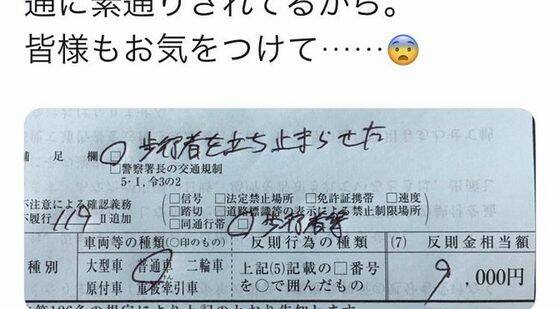 通に素通りされてるから。
皆様もお気をつけて……😨
補足欄 歩行者を立ち止まらせた
□警察署長の交通規制
5・1，令3の2
不注意による確認義務
不履行 119 Ⅱ追加
□信号 □法定禁止場所 □免許証携帯 □速度
□踏切 □道路標識等の表示による禁止制限場所
□同通行帯 歩行者等
種別
車両等の種類（○印のもの）
大型車 普通車 二輪車
原付車 重被牽引車
けん
反則行為の種類
上記(5)記載の□番号
を○で囲んだもの
(7) 反則金相当額
9,000円